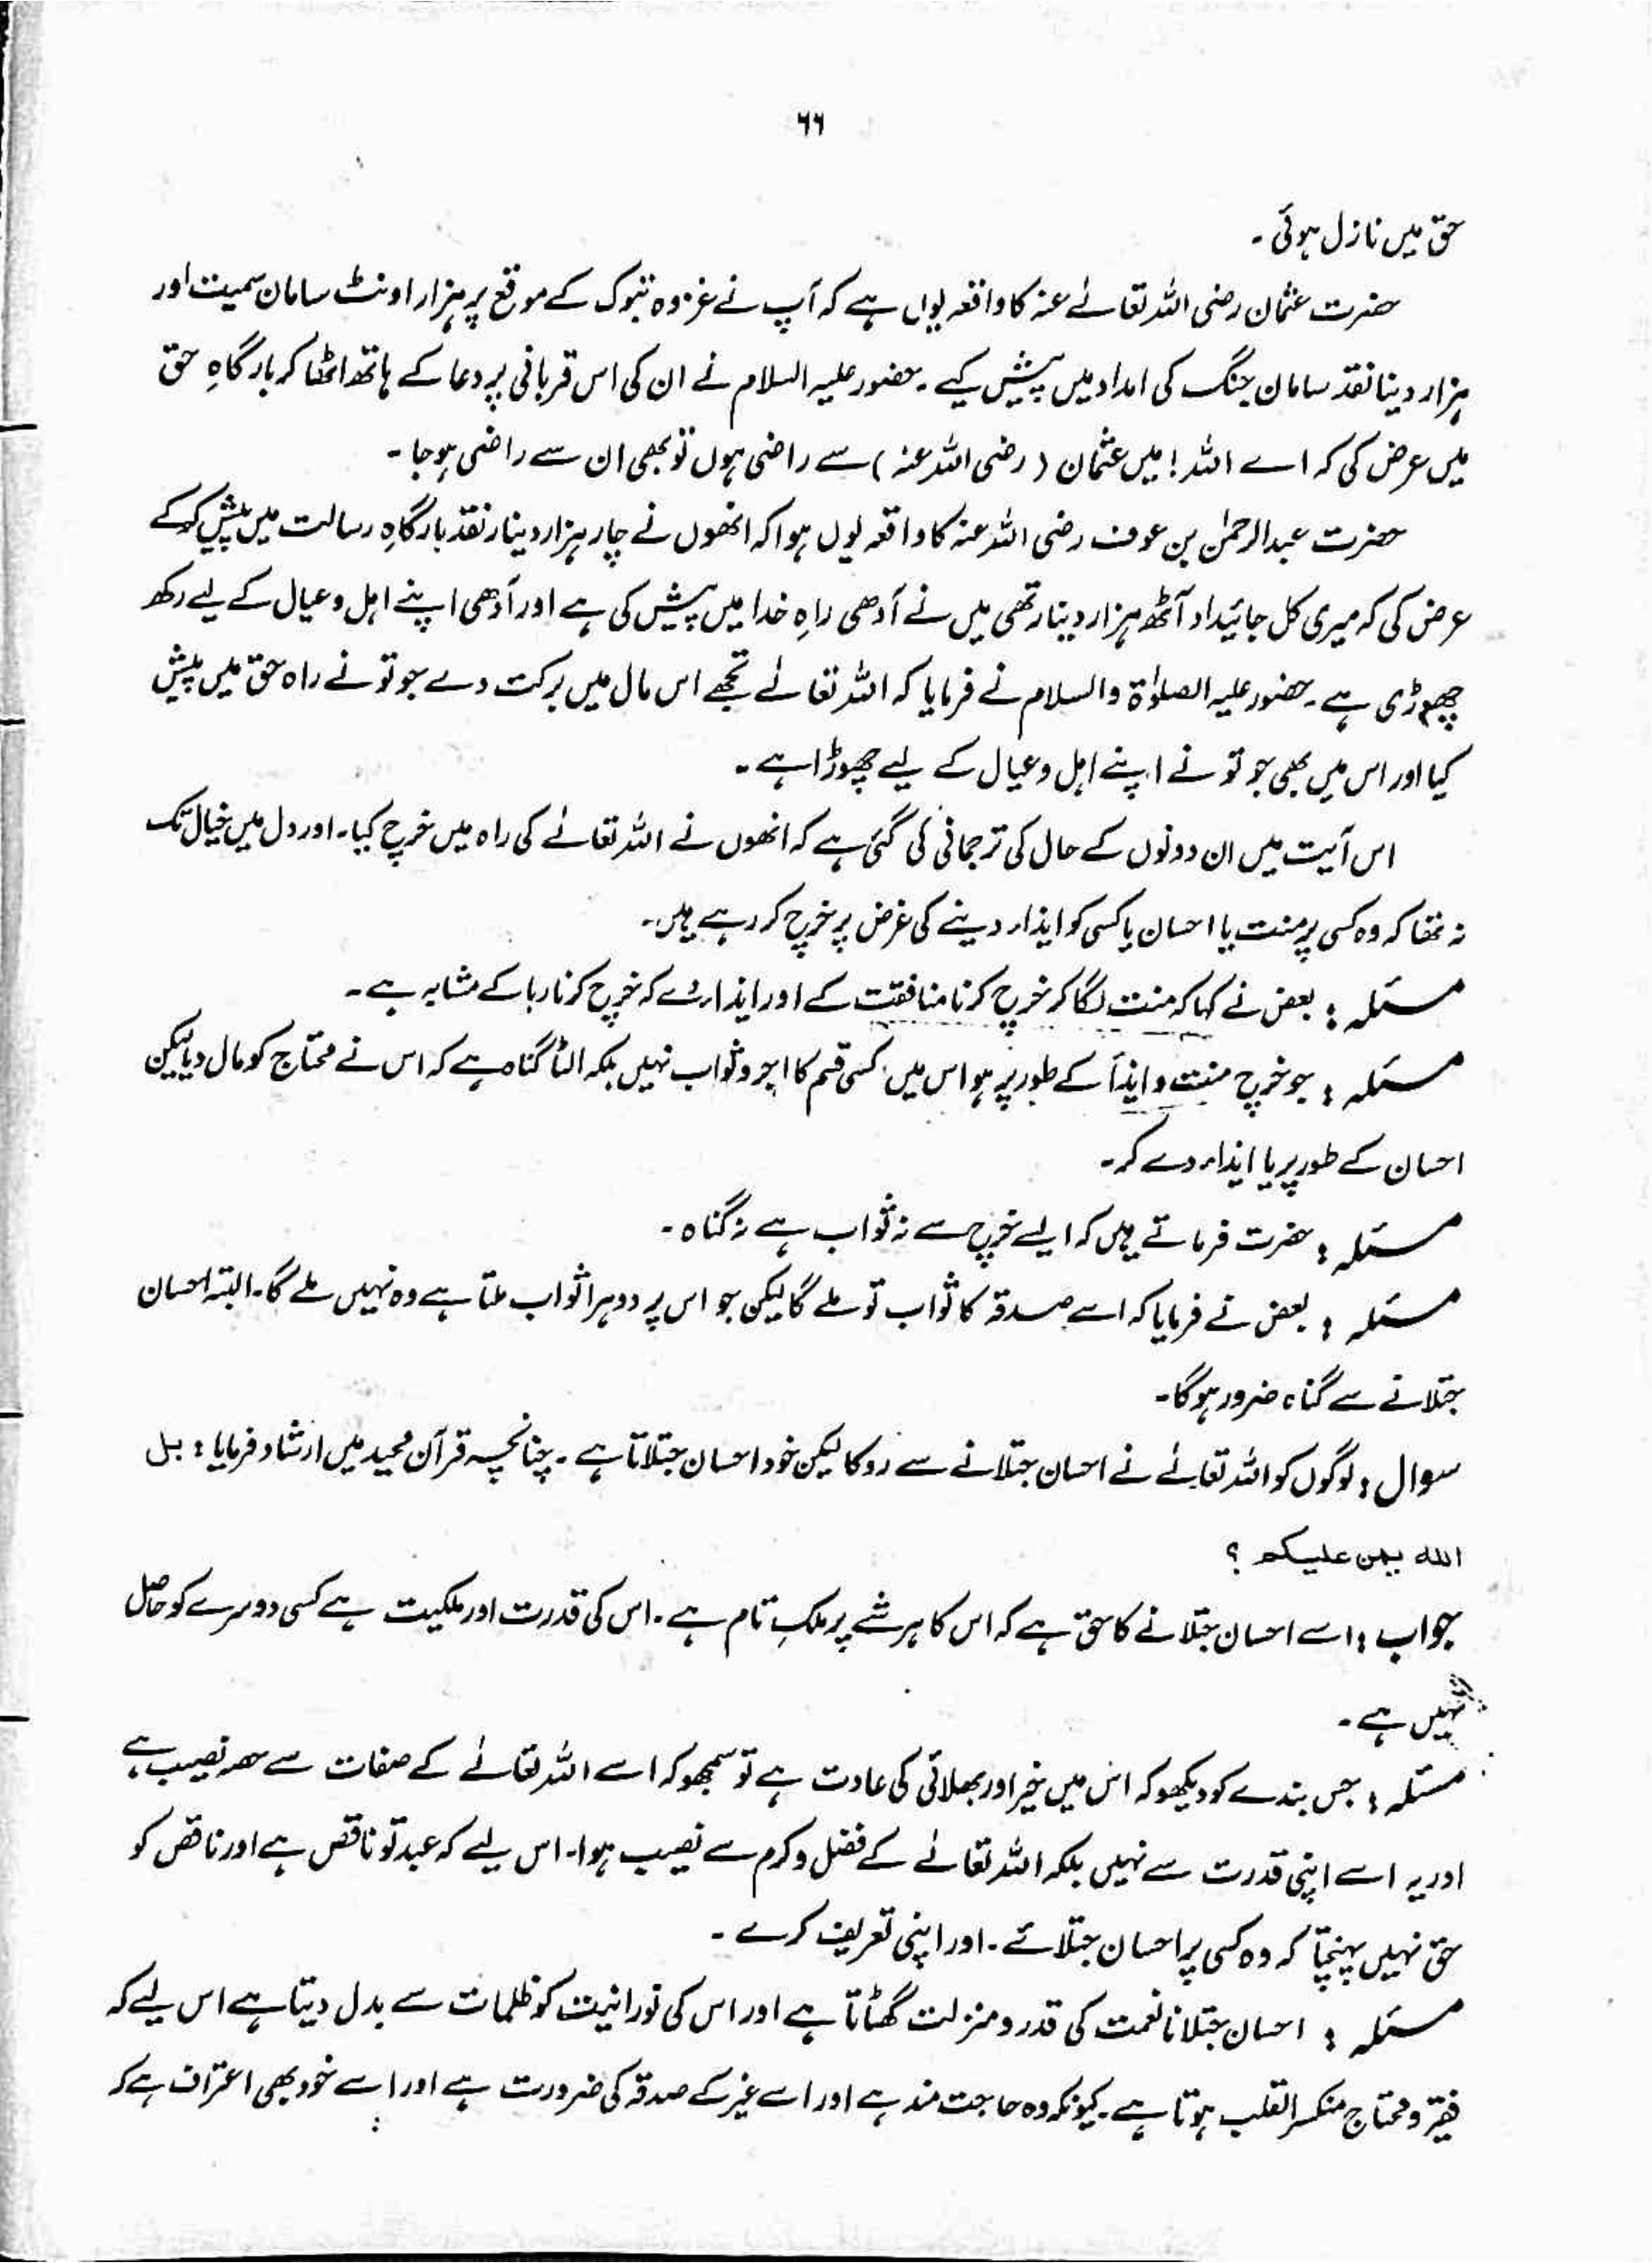 ٦٦
حق میں نازل ہوئی۔
حضرت عثمان رضی اللہ تعالےٰ عنہ کا واقعہ یوں ہے کہ آپ نے غزوہ تبوک کے موقع پر ہزار اونٹ سامان سمیت اور
ہزار دینا نقد سامان جنگ کی امداد میں پیش کیے۔ حضور علیہ السلام نے ان کی اس قربانی پر دعا کے ہاتھ اٹھا کر بارگاہِ حق
میں عرض کی کہ اے اللہ! میں عثمان (رضی اللہ عنہ) سے راضی ہوں تو بھی ان سے راضی ہو جا۔
حضرت عبدالرحمٰن بن عوف رضی اللہ عنہ کا واقعہ یوں ہوا کہ انھوں نے چار ہزار دینار نقد بارگاہِ رسالت میں پیش کرکے
عرض کی کہ میری کل جائیداد آٹھ ہزار دینار تھی میں نے آدھی راہِ خدا میں پیش کی ہے اور آدھی اپنے اہل و عیال کے لیے رکھ
چھوڑی ہے۔ حضور علیہ الصلوٰۃ والسلام نے فرمایا کہ اللہ تعالےٰ تجھے اس مال میں برکت دے جو تو نے راہ حق میں پیش
کیا اور اس میں بھی جو تو نے اپنے اہل و عیال کے لیے چھوڑا ہے۔
اس آیت میں ان دونوں کے حال کی ترجمانی کی گئی ہے کہ انھوں نے اللہ تعالےٰ کی راہ میں خرچ کیا۔ اور دل میں خیال تک
نہ تھا کہ وہ کسی پر منت یا احسان یا کسی کو ایذاء دینے کی غرض پر خرچ کر رہے ہیں۔
مسئلہ : بعض نے کہا کہ منت لگا کر خرچ کرنا منافقت کے اور ایذاء دے کر خرچ کرنا ربا کے مشابہ ہے۔
مسئلہ : جو خرچ منت و ایذأ کے طور پر ہو اس میں کسی قسم کا اجر و ثواب نہیں بلکہ الٹا گناہ ہے کہ اس نے محتاج کو مال دیا لیکن
احسان کے طور پر یا ایذاء دے کر۔
مسئلہ : حضرت فرماتے ہیں کہ ایسے خرچ سے نہ ثواب ہے نہ گناہ۔
مسئلہ : بعض نے فرمایا کہ اسے صدقہ کا ثواب تو ملے گا لیکن جو اس پر دوہرا ثواب ملتا ہے وہ نہیں ملے گا۔ البتہ احسان
جتلانے سے گناہ ضرور ہوگا۔
سوال : لوگوں کو اللہ تعالےٰ نے احسان جتلانے سے روکا لیکن خود احسان جتلاتا ہے۔ چنانچہ قرآن مجید میں ارشاد فرمایا : بل
الله یمن علیکم ؟
جواب : اسے احسان جتلانے کا حق ہے کہ اس کا ہر شے پر ملکِ تام ہے۔ اس کی قدرت اور ملکیت ہے کسی دوسرے کو حاصل
نہیں ہے۔
مسئلہ : جس بندے کو دیکھو کہ اس میں خیر اور بھلائی کی عادت ہے تو سمجھو کہ اسے اللہ تعالےٰ کے صفات سے حصہ نصیب ہے
اور یہ اسے اپنی قدرت سے نہیں بلکہ اللہ تعالےٰ کے فضل و کرم سے نصیب ہوا۔ اس لیے کہ عبد تو ناقص ہے اور ناقص کو
حق نہیں پہنچتا کہ وہ کسی پر احسان جتلائے۔ اور اپنی تعریف کرے۔
مسئلہ : احسان جتلانا نعمت کی قدر و منزلت گھٹاتا ہے اور اس کی نورانیت کو ظلمات سے بدل دیتا ہے اس لیے کہ
فقیر و محتاج منکسر القلب ہوتا ہے۔ کیونکہ وہ حاجت مند ہے اور اسے غیر کے صدقہ کی ضرورت ہے اور اسے خود بھی اعتراف ہے کہ